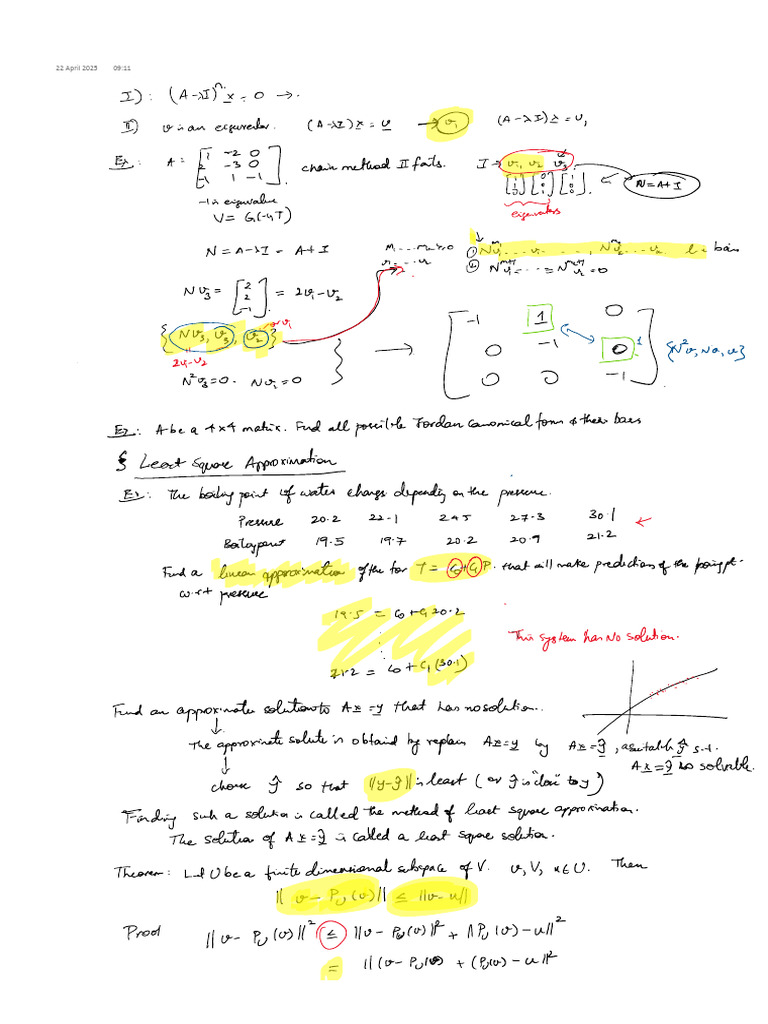 22 April 2025 09:11
I): (A-λI)ⁿx = 0 →.
II) v is an eigenvector. (A-λI)x = v → v₁ (A-λI)x = v₁
Ex: A = [1 -2 0; 2 -3 0; -1 1 -1]. chain method II fails. I → v₁, v₂ v₃
[1 1 0] [0 0 1] [1 1 1]. ← N = A+I
eigenvectors
-1 is eigenvalue
V = G(-1,T)
N = A-λI = A+I
m₁....mₙ≥0
v₁....v
① N^m₁v₁...v₁ ...., N^m₂v₂...v₂ be basis
② N^m₁+1v₁ = .. = N^mn+1v₂ = 0
Nv₃ = [2 2 -1] = 2v₁-v₂
{Nv₃, v₃, v₂} or v₁
2v₁-v₂
N²v₃ = 0. Nv₁ = 0 }
→ [-1 1 0; 0 -1 0; 0 0 -1]
1 {N²v, Nv, v}
Ex: A be a 4x4 matrix. Find all possible Jordan canonical form & their bases
§ Least Square Approximation
Ex: The boiling point of water change depending on the pressure.
Pressure 20.2 22.1 24.5 27.3 30.1 ←
Boiling point 19.5 19.7 20.2 20.9 21.2
Find a linear approximation of the for T = C₀+C₁P. that will make prediction of the boing pt.
w.r.t pressure
19.5 = C₀ + C₁ 20.2
⋮
21.2 = C₀ + C₁(30.1)
This system has No solution.
Find an approximate solution to Ax = y that has no solution.
↓
The approximate solute is obtaind by replain Ax = y by Ax = ŷ, a suitable ŷ s.t.
Ax = ŷ is solvable.
↓
choose ŷ so that ||y-ŷ|| is least (or ŷ is "close" to y)
Finding such a solution is called the method of least square approximation.
The solution of Ax = ŷ is called a least sqare solution.
Theorem: Let U be a finite dimensional subspace of V. v∈V, u∈U. Then
||v - P_U(v)|| ≤ ||v-u||
Proof ||v - P_U(v)||² ≤ ||v - P_U(v)||² + ||P_U(v) - u||²
= ||(v - P_U(v)) + (P_U(v) - u||²